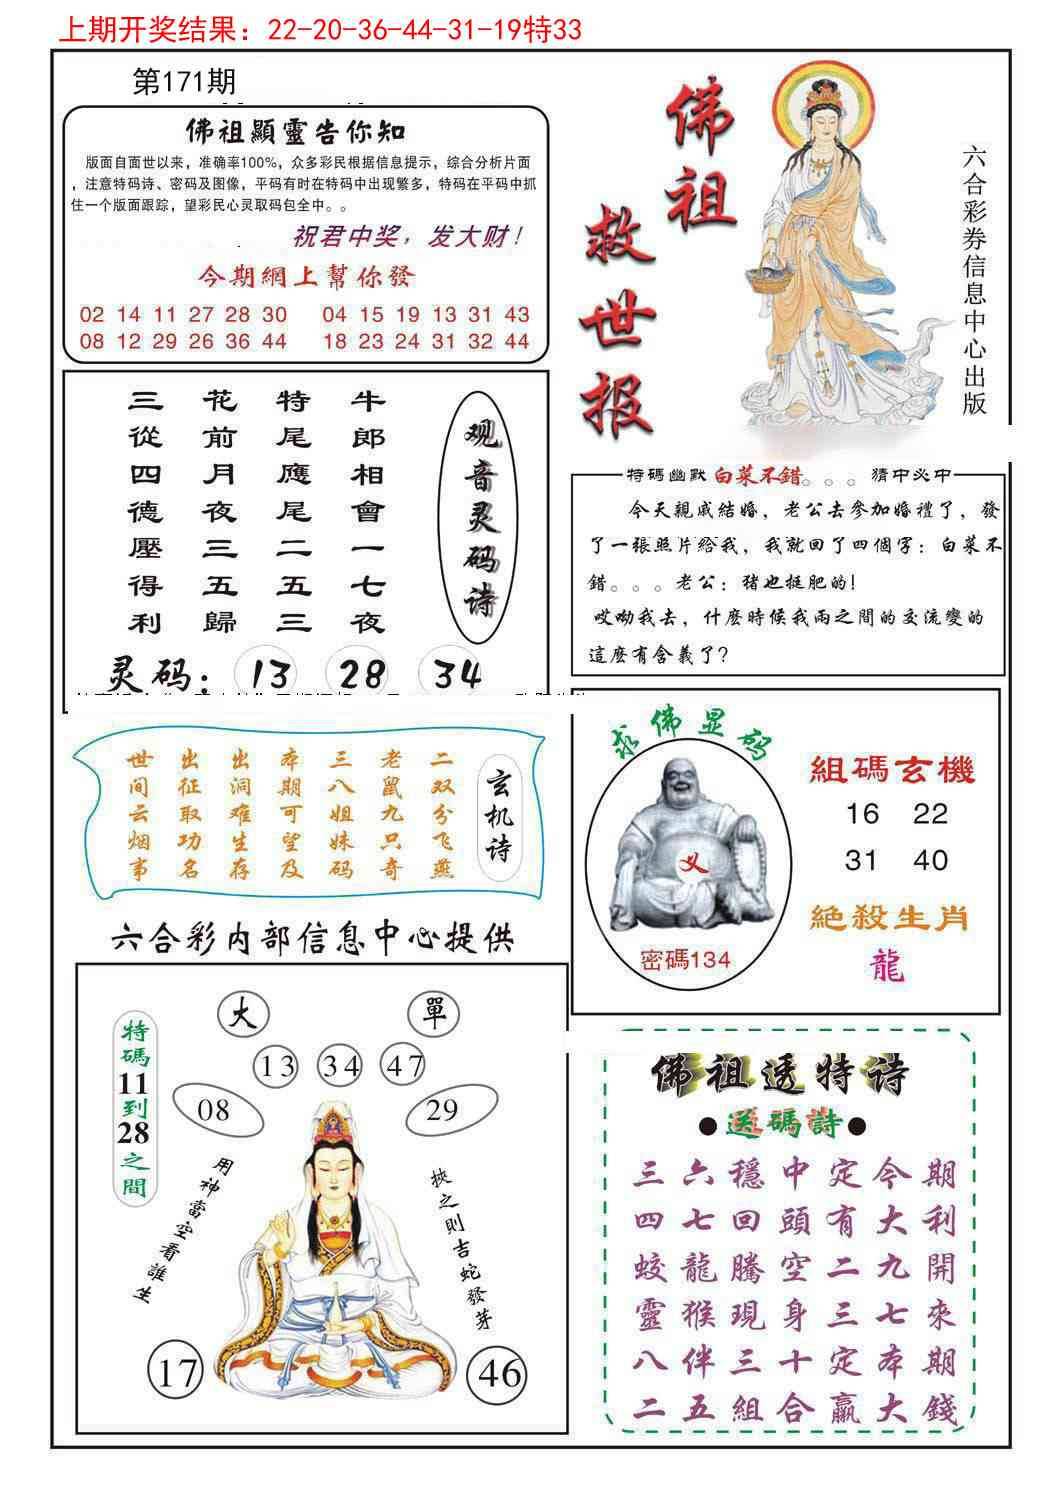 上期开奖结果：22-20-36-44-31-19特33
第171期
佛祖顯靈告你知
版面自面世以来，准确率100%，众多彩民根据信息提示，综合分析片面
，注意特码诗、密码及图像，平码有时在特码中出现繁多，特码在平码中抓
住一个版面跟踪，望彩民心灵取码包全中。。
祝君中奖，发大财！
今期網上幫你發
02 14 11 27 28 30 04 15 19 13 31 43
08 12 29 26 36 44 18 23 24 31 32 44
佛祖
救世报
六合彩券信息中心出版
观音灵码诗
牛郎相會一七夜
特尾應尾二五三
花前月夜三五歸
三從四德壓得利
灵码：13 28 34
特碼幽默 白菜不错。。。猜中必中
今天親戚結婚，老公去參加婚禮了，發
了一張照片給我，我就回了四個字：白菜不
錯。。。老公：猪也挺肥的！
哎呦我去，什麽時候我兩之間的交流變的
這麽有含義了？
玄机诗
二双分飞燕
老鼠九只奇
三八姐妹码
本期可望及
出洞难生存
出征取功名
世间云烟事
求佛显码
义
密碼134
組碼玄機
16 22
31 40
絕殺生肖
龍
六合彩内部信息中心提供
特碼11到28之間
大 單
13 34 47
08 29
用神當空看誰生
挾之則吉蛇發芽
17 46
佛祖透特诗
●送碼詩●
三六穩中定今期
四七回頭有大利
蛟龍騰空二九開
靈猴現身三七來
八伴三十定本期
二五組合贏大錢